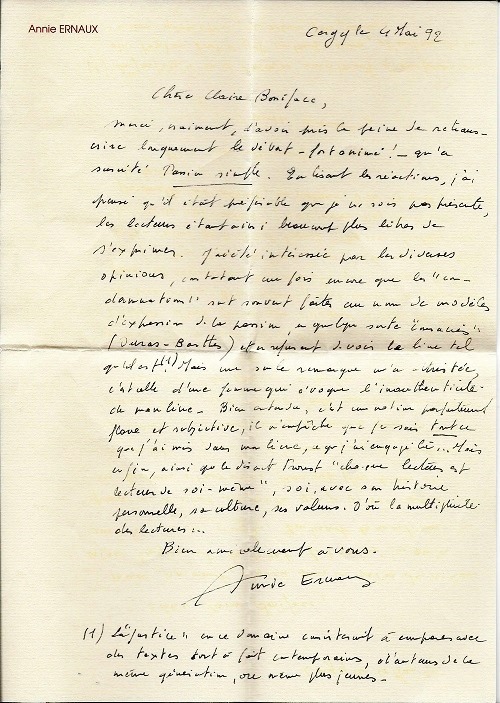 Annie ERNAUX
Cergy le 4 Mai 92
Chère Claire Boniface,
merci, vraiment, d'avoir pris la peine de retrans-
crire longuement le débat - fort animé ! - qu'a
suscité Passion simple. En lisant les réactions, j'ai
pensé qu'il était préférable que je ne sois pas présente,
les lecteurs étant ainsi beaucoup plus libres de
s'exprimer. J'ai été intéressée par les diverses
opinions, constatant une fois encore que les "con-
damnations" sont souvent faites au nom de modèles
d'expression de la passion, en quelque sorte "consacrés"
(Duras - Barthes) et en refusant de voir le livre tel
qu'il est (1) Mais une seule remarque m'a attristée,
c'est celle d'une femme qui évoque l'inauthenticité
de mon livre. Bien entendu, c'est une notion parfaitement
floue et subjective, il n'empêche que je sais tout ce
que j'ai mis dans ma livre, et que j'ai engagé là... Mais
enfin, ainsi que le disait Proust "chaque lecteur est
lecteur de soi-même", soi, avec son histoire
personnelle, sa culture, ses valeurs. D'où la multiplicité
des lectures...
Bien amicalement à vous.
Annie Ernaux
(1) La "justice" en ce domaine consisterait à comparer avec
des textes tout à fait contemporains, d'auteurs de la
même génération, ou même plus jeunes -